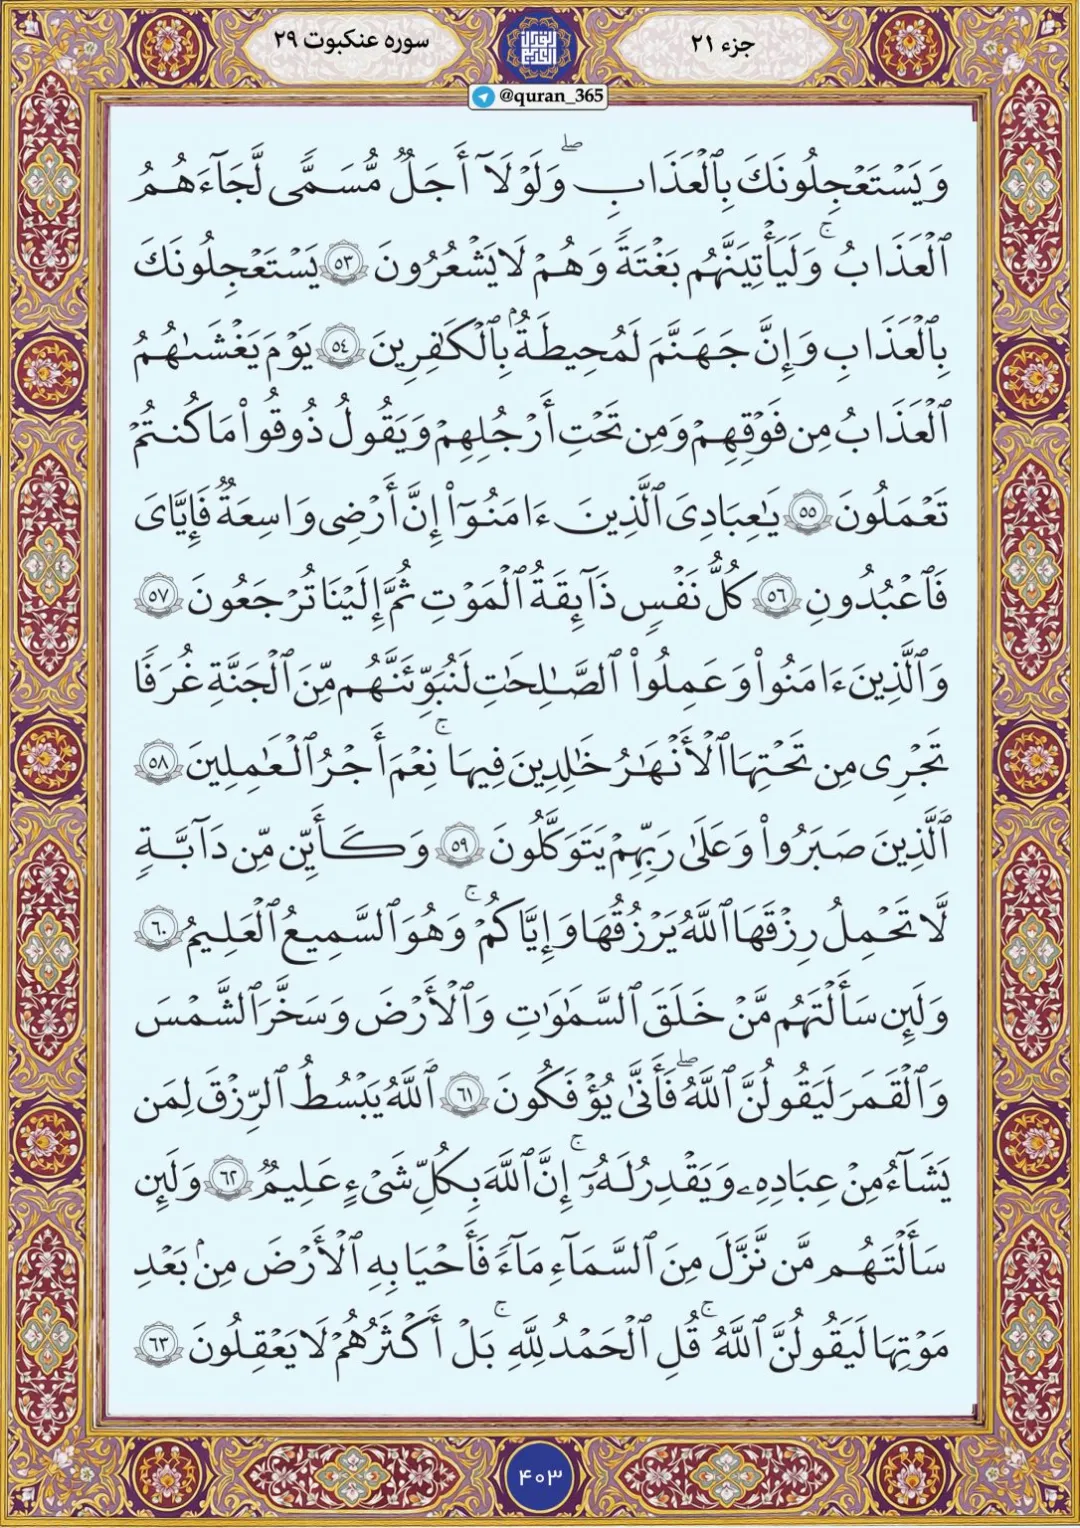 جزء ۲۱
سوره عنکبوت ۲۹
@quran_365
وَيَسْتَعْجِلُونَكَ بِٱلْعَذَابِ ۖ وَلَوْلَآ أَجَلٌ مُّسَمًّى لَّجَآءَهُمُ
ٱلْعَذَابُ ۚ وَلَيَأْتِيَنَّهُم بَغْتَةً وَهُمْ لَا يَشْعُرُونَ ٥٣ يَسْتَعْجِلُونَكَ
بِٱلْعَذَابِ وَإِنَّ جَهَنَّمَ لَمُحِيطَةٌۢ بِٱلْكَٰفِرِينَ ٥٤ يَوْمَ يَغْشَىٰهُمُ
ٱلْعَذَابُ مِن فَوْقِهِمْ وَمِن تَحْتِ أَرْجُلِهِمْ وَيَقُولُ ذُوقُوا۟ مَا كُنتُمْ
تَعْمَلُونَ ٥٥ يَٰعِبَادِىَ ٱلَّذِينَ ءَامَنُوٓا۟ إِنَّ أَرْضِى وَٰسِعَةٌ فَإِيَّٰىَ
فَٱعْبُدُونِ ٥٦ كُلُّ نَفْسٍ ذَآئِقَةُ ٱلْمَوْتِ ثُمَّ إِلَيْنَا تُرْجَعُونَ ٥٧
وَٱلَّذِينَ ءَامَنُوا۟ وَعَمِلُوا۟ ٱلصَّٰلِحَٰتِ لَنُبَوِّئَنَّهُم مِّنَ ٱلْجَنَّةِ غُرَفًا
تَجْرِى مِن تَحْتِهَا ٱلْأَنْهَٰرُ خَٰلِدِينَ فِيهَا ۚ نِعْمَ أَجْرُ ٱلْعَٰمِلِينَ ٥٨
ٱلَّذِينَ صَبَرُوا۟ وَعَلَىٰ رَبِّهِمْ يَتَوَكَّلُونَ ٥٩ وَكَأَيِّن مِّن دَآبَّةٍ
لَّا تَحْمِلُ رِزْقَهَا ٱللَّهُ يَرْزُقُهَا وَإِيَّاكُمْ ۚ وَهُوَ ٱلسَّمِيعُ ٱلْعَلِيمُ ٦٠
وَلَئِن سَأَلْتَهُم مَّنْ خَلَقَ ٱلسَّمَٰوَٰتِ وَٱلْأَرْضَ وَسَخَّرَ ٱلشَّمْسَ
وَٱلْقَمَرَ لَيَقُولُنَّ ٱللَّهُ ۖ فَأَنَّىٰ يُؤْفَكُونَ ٦١ ٱللَّهُ يَبْسُطُ ٱلرِّزْقَ لِمَن
يَشَآءُ مِنْ عِبَادِهِۦ وَيَقْدِرُ لَهُۥٓ ۚ إِنَّ ٱللَّهَ بِكُلِّ شَىْءٍ عَلِيمٌ ٦٢ وَلَئِن
سَأَلْتَهُم مَّن نَّزَّلَ مِنَ ٱلسَّمَآءِ مَآءً فَأَحْيَا بِهِ ٱلْأَرْضَ مِنۢ بَعْدِ
مَوْتِهَا لَيَقُولُنَّ ٱللَّهُ ۚ قُلِ ٱلْحَمْدُ لِلَّهِ ۚ بَلْ أَكْثَرُهُمْ لَا يَعْقِلُونَ ٦٣
۴۰۳